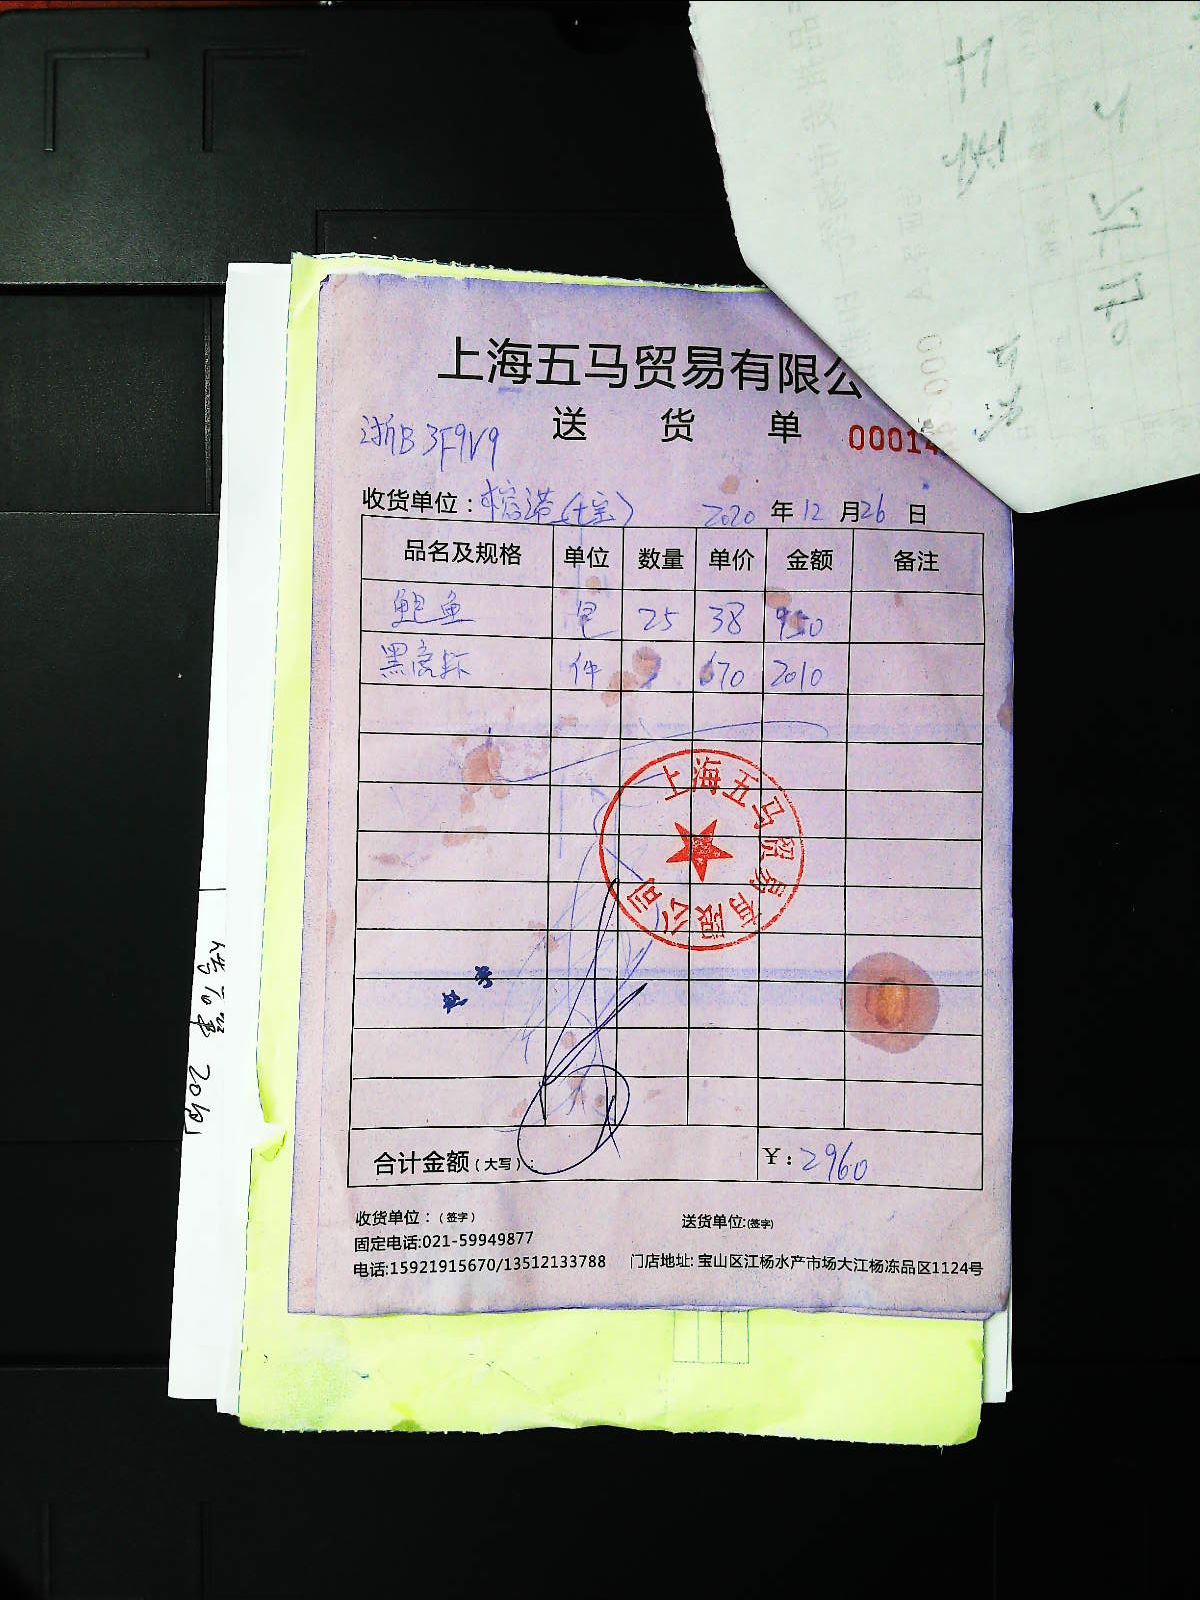 上海五马贸易有限公
送 货 单 00014
浙B3F9V9
收货单位： 2020 年 12 月 26 日
品名及规格 单位 数量 单价 金额 备注
鲍鱼 25 38 950
黑虎虾 件 3 670 2010
上海五马贸易有限公司
合计金额（大写）： ¥：2960
收货单位：（签字） 送货单位:(签字)
固定电话:021-59949877
电话:15921915670/13512133788 门店地址: 宝山区江杨水产市场大江杨冻品区1124号